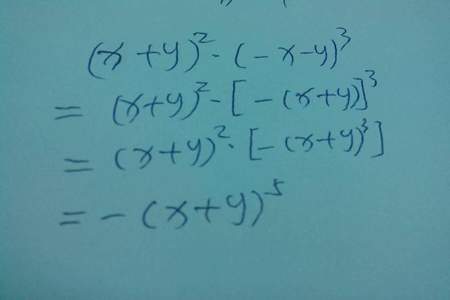 (x+y)²·(-x-y)³
= (x+y)²·[-(x+y)]³
= (x+y)²·[-(x+y)³]
= -(x+y)⁵